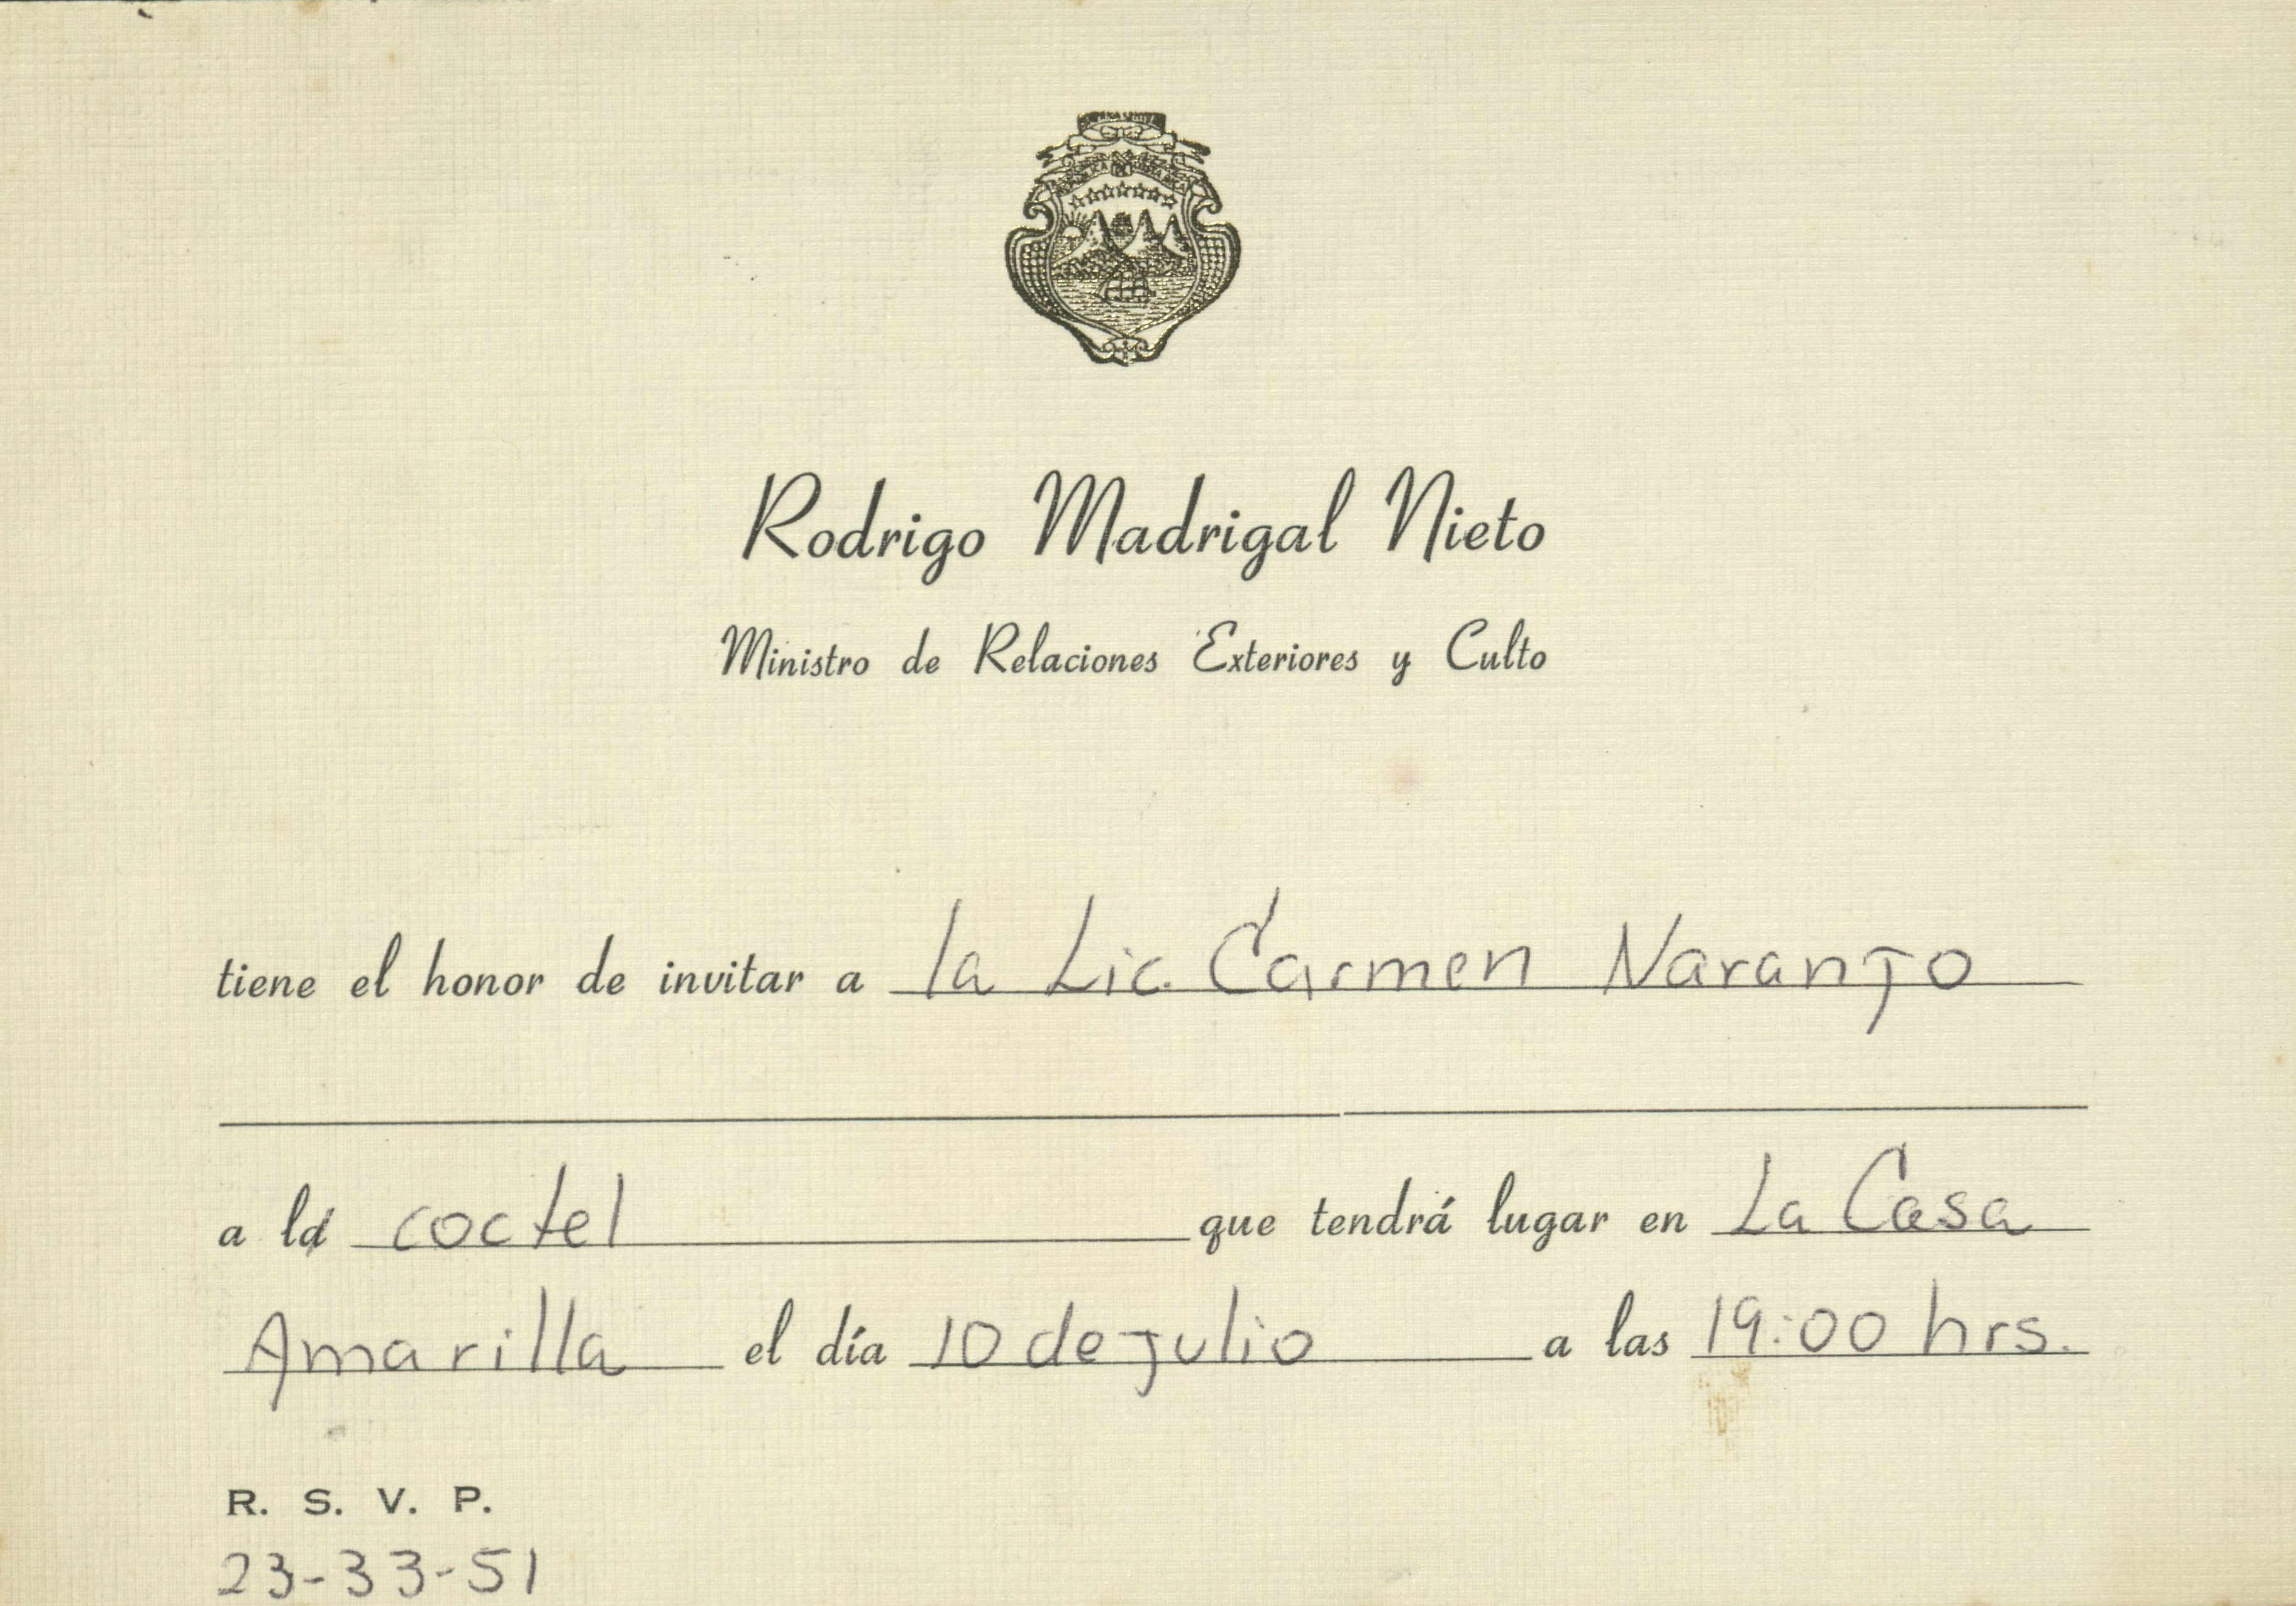 Rodrigo Madrigal Nieto
Ministro de Relaciones Exteriores y Culto
tiene el honor de invitar a la Lic. Carmen Naranjo
a la coctel que tendrá lugar en La Casa
Amarilla el día 10 de julio a las 19:00 hrs.
R. S. V. P.
23-33-51